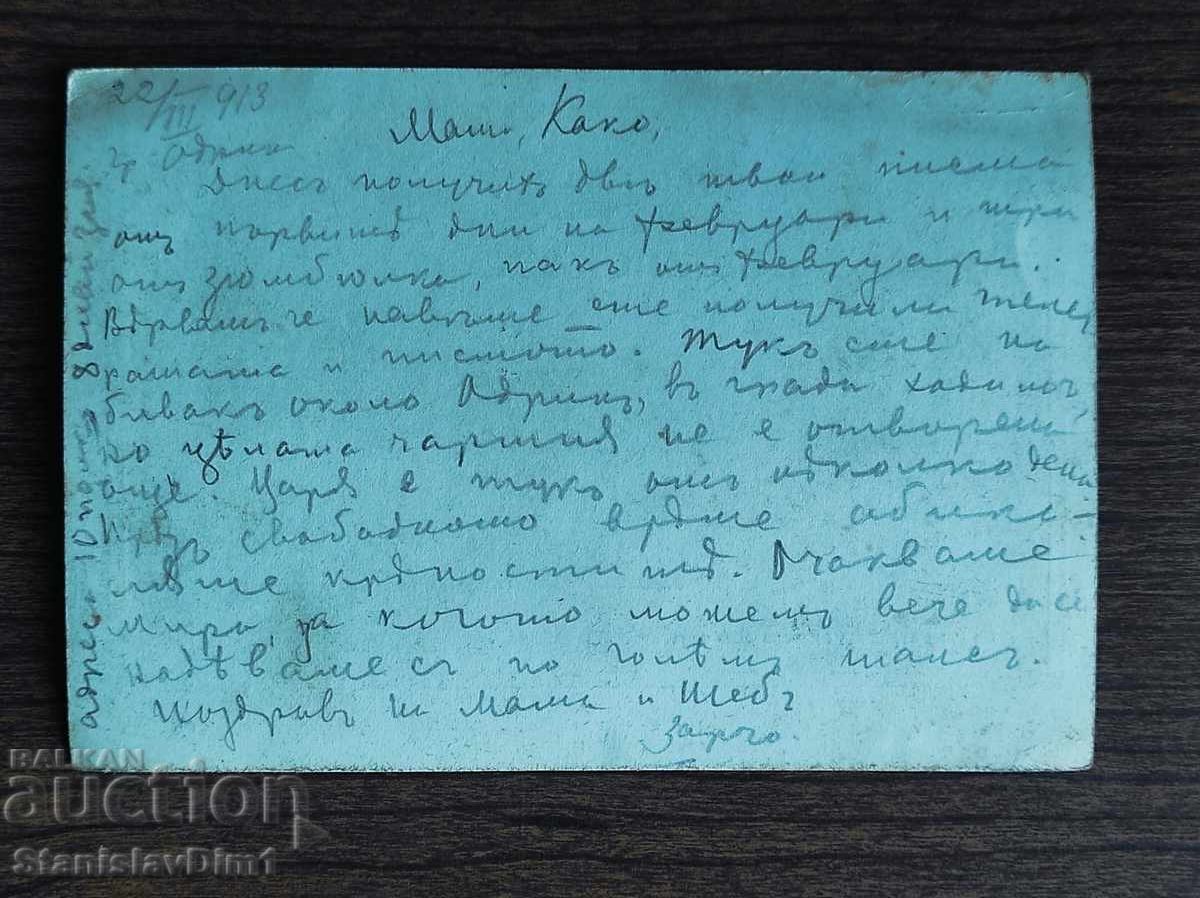 22/III 913
гр Одрин
Мами, Како,
Днесъ получихъ двѣ твои писма
отъ първитѣ дни на февруари и три
отъ зюмбюлка, пакъ отъ февруари.
Вѣрвамъ че навѣрне сте получили телег
рамата и писмото. Тукъ сме на
бивакъ около Одринъ, въ града ходимъ,
но цѣлата чаршия не е отворена
още. Царя е тукъ отъ нѣколко дена
Прѣзъ свободното врѣме обика-
ляме крѣпоститѣ. Очакваме
мира, за когото можемъ вече да се
надѣваме съ по голѣмъ шансъ.
Поздравъ на Мама и Тебъ
адресъ 10
BALKAN
auction
StanislavDim1